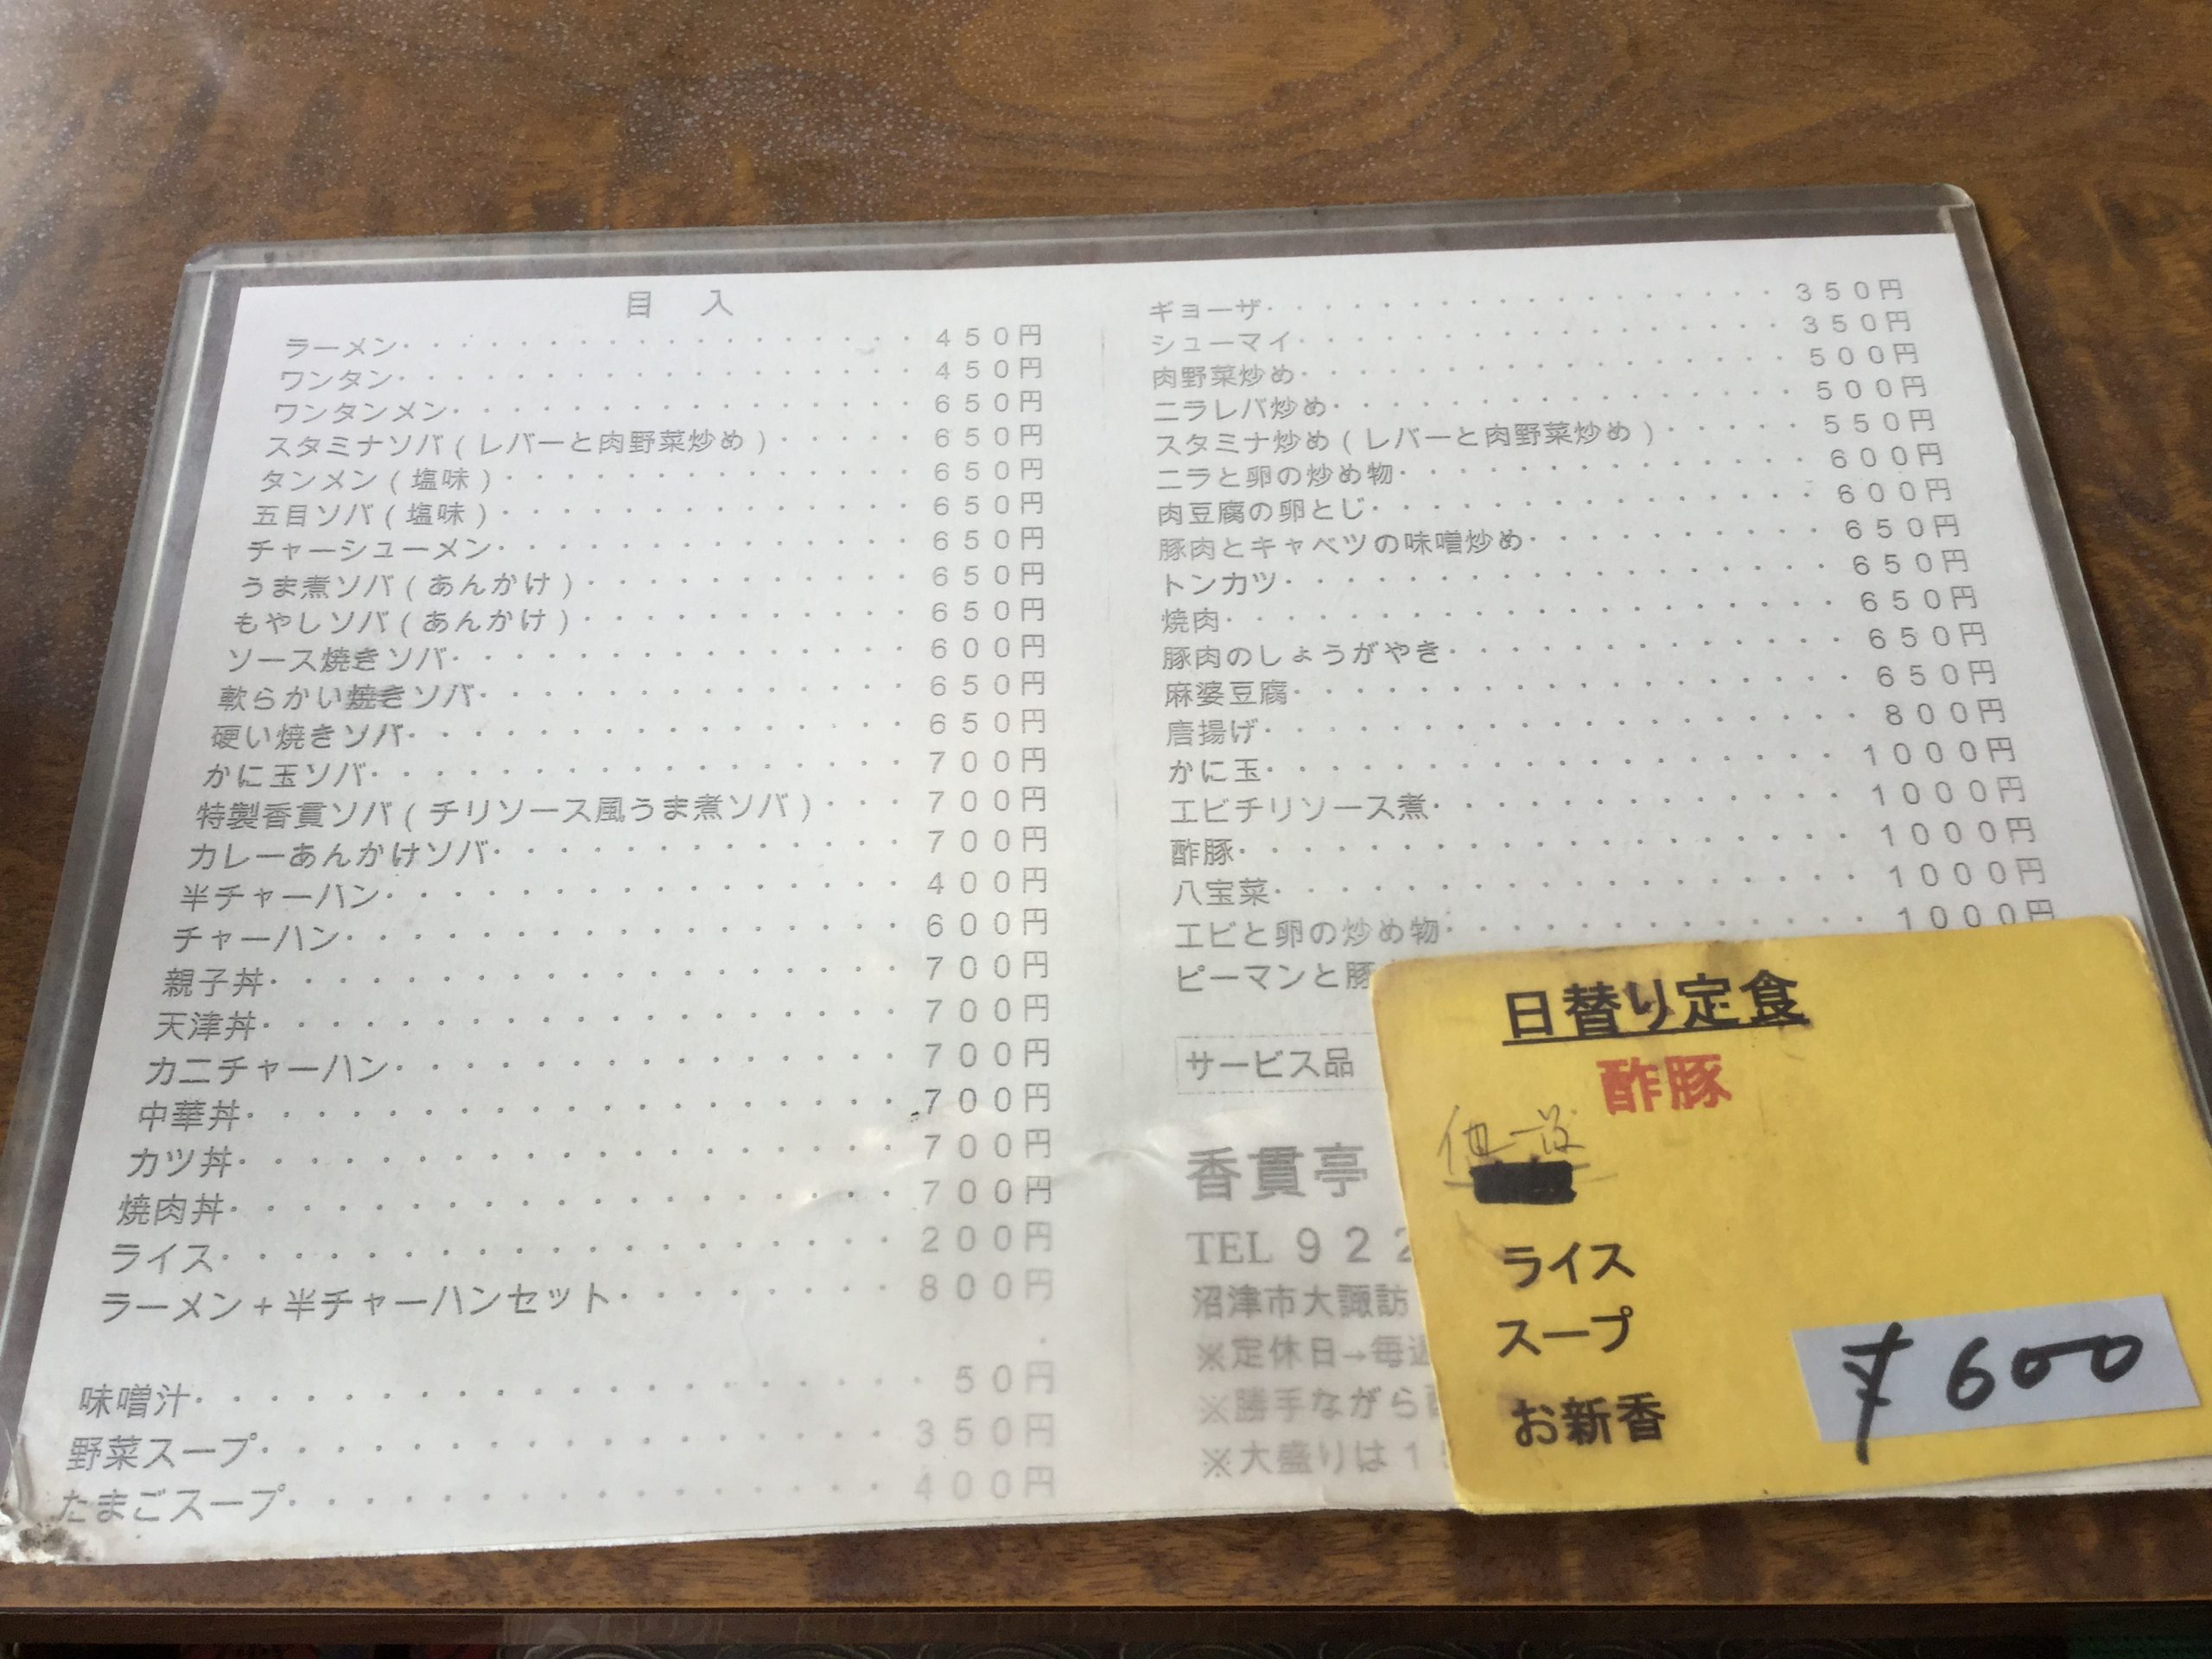 目 入
ラーメン・・・・・・・・・・・・・・・・・450円
ワンタン・・・・・・・・・・・・・・・・・450円
ワンタンメン・・・・・・・・・・・・・・・650円
スタミナソバ(レバーと肉野菜炒め)・・・・・650円
タンメン(塩味)・・・・・・・・・・・・・650円
五目ソバ(塩味)・・・・・・・・・・・・・650円
チャーシューメン・・・・・・・・・・・・・650円
うま煮ソバ(あんかけ)・・・・・・・・・・650円
もやしソバ(あんかけ)・・・・・・・・・・650円
ソース焼きソバ・・・・・・・・・・・・・・600円
軟らかい焼きソバ・・・・・・・・・・・・・650円
硬い焼きソバ・・・・・・・・・・・・・・・650円
かに玉ソバ・・・・・・・・・・・・・・・・700円
特製香貫ソバ(チリソース風うま煮ソバ)・・・700円
カレーあんかけソバ・・・・・・・・・・・・700円
半チャーハン・・・・・・・・・・・・・・・400円
チャーハン・・・・・・・・・・・・・・・・600円
親子丼・・・・・・・・・・・・・・・・・・700円
天津丼・・・・・・・・・・・・・・・・・・700円
カニチャーハン・・・・・・・・・・・・・・700円
中華丼・・・・・・・・・・・・・・・・・・700円
カツ丼・・・・・・・・・・・・・・・・・・700円
焼肉丼・・・・・・・・・・・・・・・・・・700円
ライス・・・・・・・・・・・・・・・・・・200円
ラーメン+半チャーハンセット・・・・・・・・800円
味噌汁・・・・・・・・・・・・・・・・・・50円
野菜スープ・・・・・・・・・・・・・・・・350円
たまごスープ・・・・・・・・・・・・・・・400円
ギョーザ・・・・・・・・・・・・・・・・・350円
シューマイ・・・・・・・・・・・・・・・・350円
肉野菜炒め・・・・・・・・・・・・・・・・500円
ニラレバ炒め・・・・・・・・・・・・・・・500円
スタミナ炒め(レバーと肉野菜炒め)・・・・・550円
ニラと卵の炒め物・・・・・・・・・・・・・600円
肉豆腐の卵とじ・・・・・・・・・・・・・・600円
豚肉とキャベツの味噌炒め・・・・・・・・・650円
トンカツ・・・・・・・・・・・・・・・・・650円
焼肉・・・・・・・・・・・・・・・・・・・650円
豚肉のしょうがやき・・・・・・・・・・・・650円
麻婆豆腐・・・・・・・・・・・・・・・・・650円
唐揚げ・・・・・・・・・・・・・・・・・・800円
かに玉・・・・・・・・・・・・・・・・・1000円
エビチリソース煮・・・・・・・・・・・・1000円
酢豚・・・・・・・・・・・・・・・・・・1000円
八宝菜・・・・・・・・・・・・・・・・・1000円
エビと卵の炒め物・・・・・・・・・・・・1000円
ピーマンと豚
サービス品
香貫亭
TEL 922
沼津市大諏訪
※定休日→毎週
※勝手ながら
※大盛りは1
日替り定食
酢豚
他一品
ライス
スープ
お新香
¥600